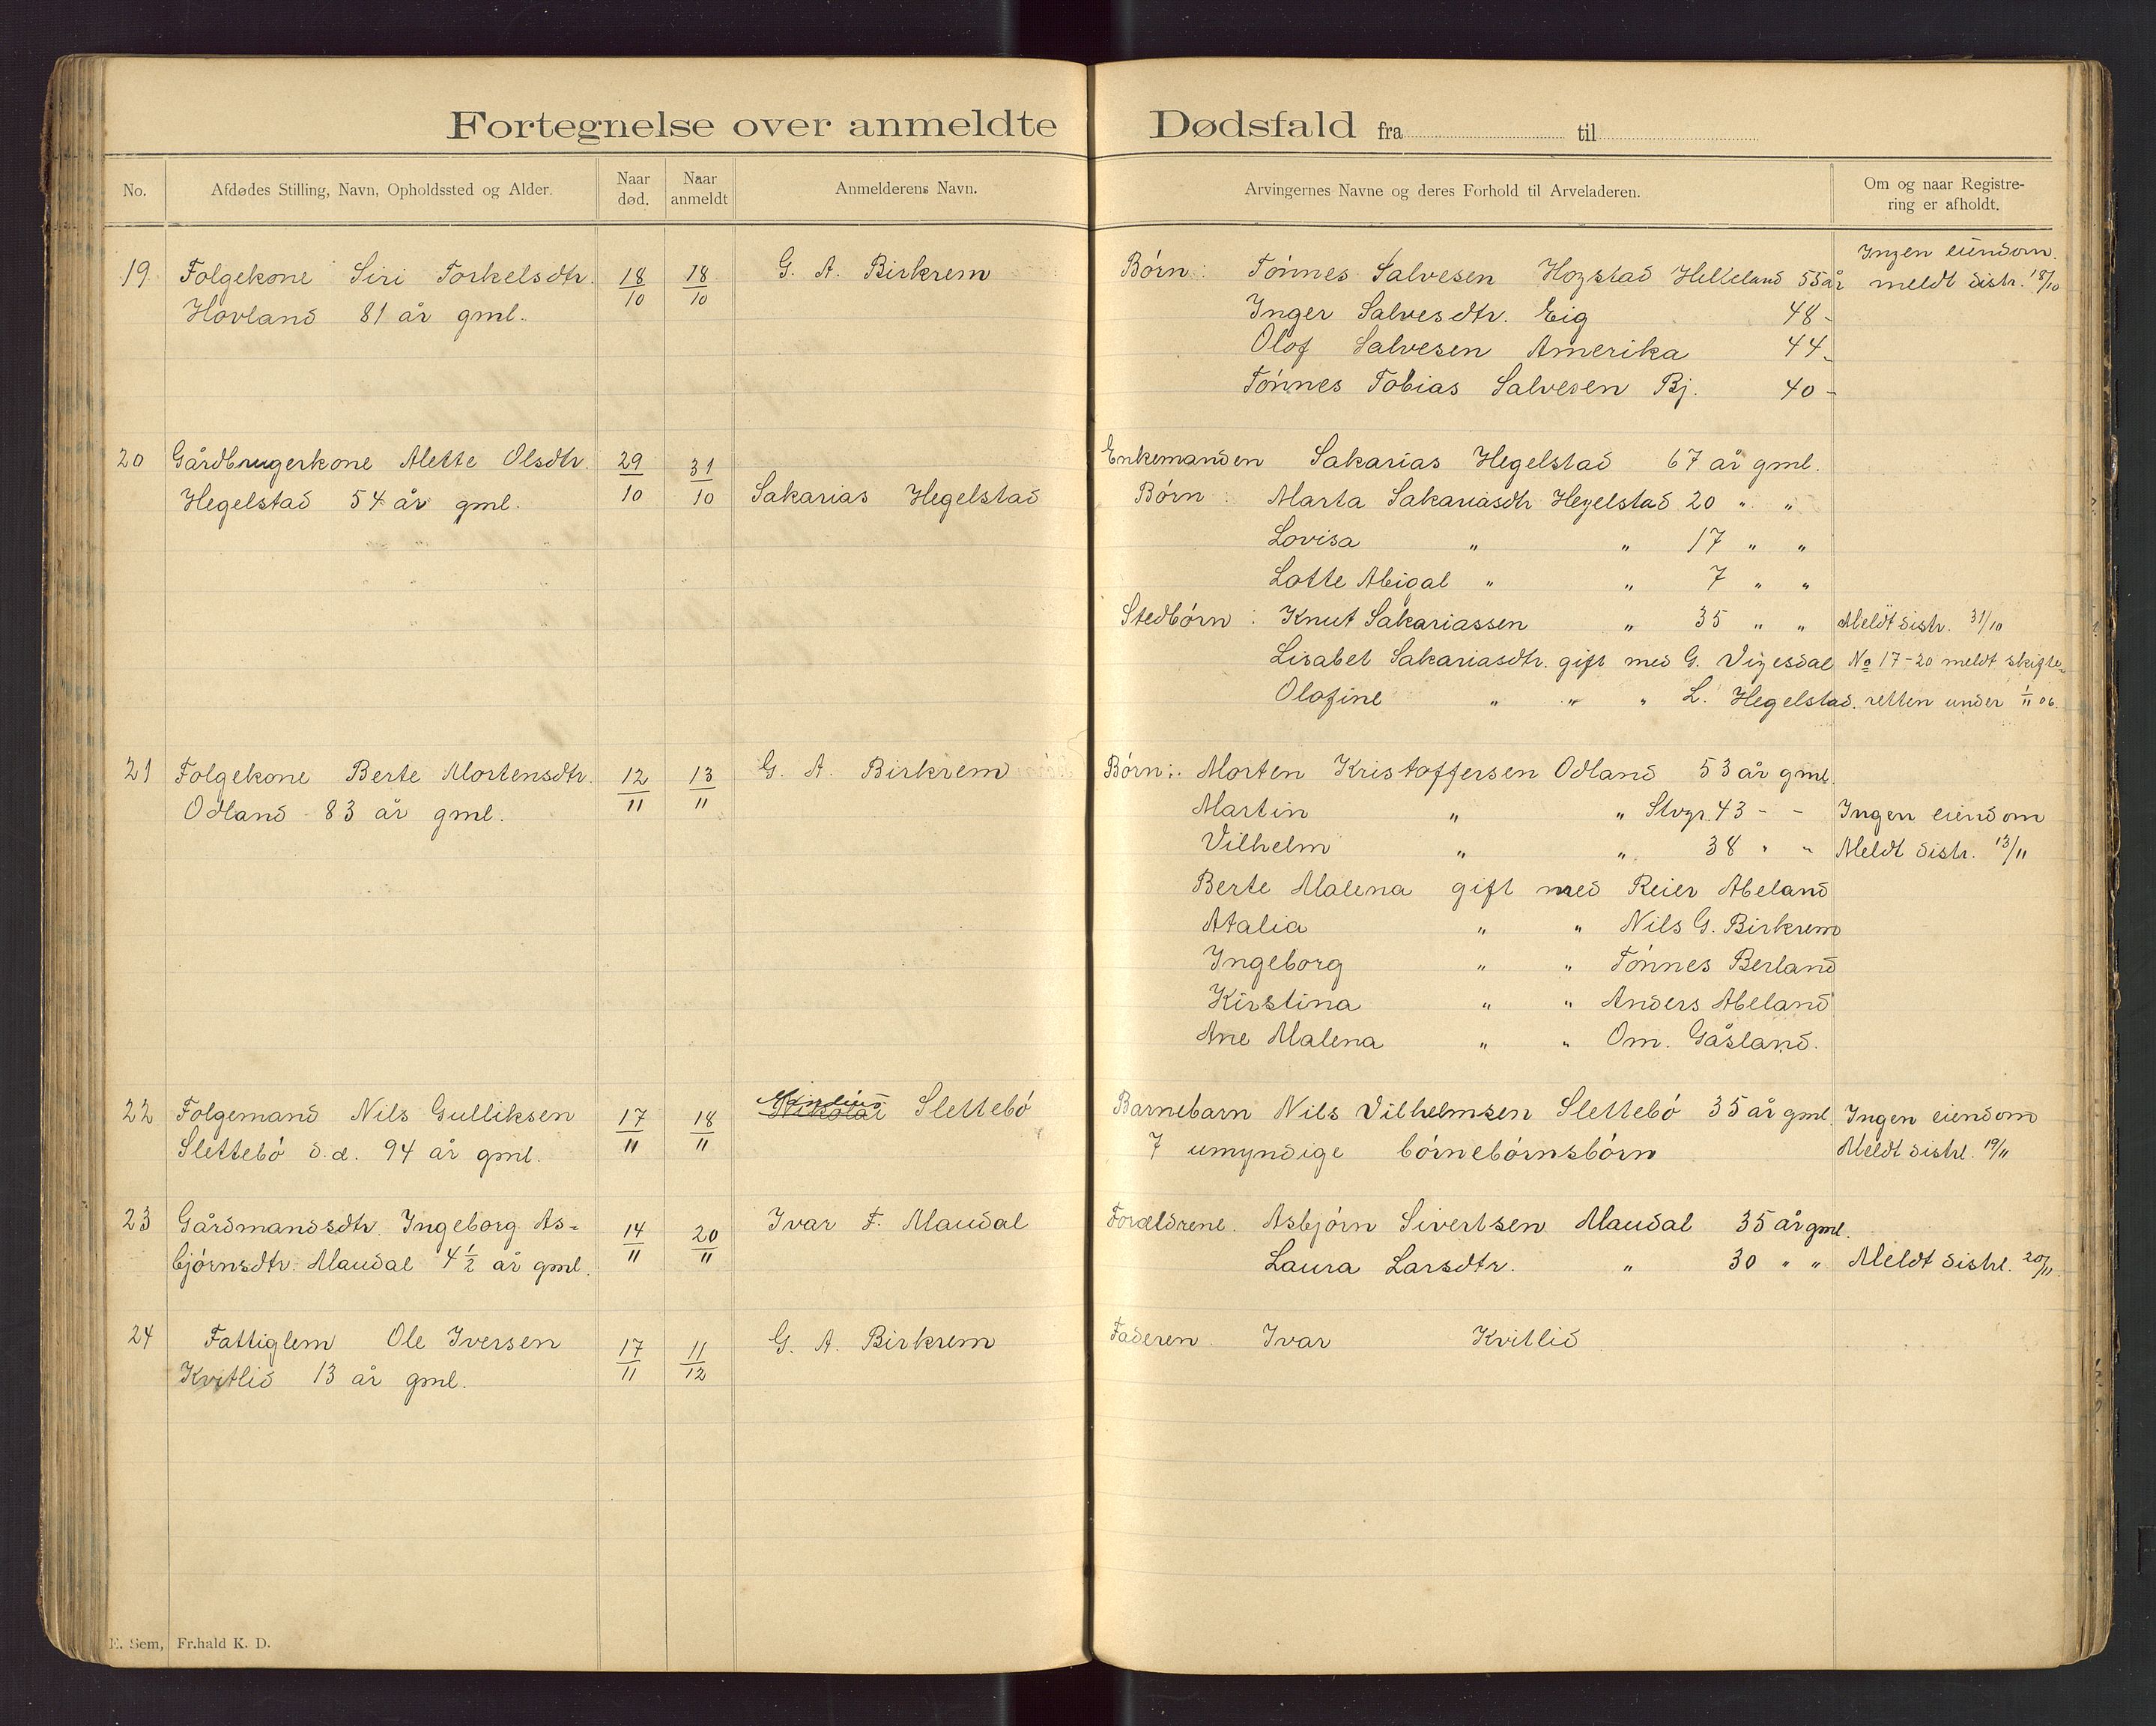 Fortegnelse over anmeldte Dødsfald fra til
No. Afdødes Stilling, Navn, Opholdssted og Alder. Naar død. Naar anmeldt Anmelderens Navn. Arvingernes Navne og deres Forhold til Arveladeren. Om og naar Registrering er afholdt.
19 Folgekone Siri Torkelsdtr. 18/10 18/10 G. A. Birkrem Børn: Tønnes Salvesen Hogstad Helleland 55 år Ingen eiendom.
Hovland 81 år gml. Inger Salvesdtr. Eig 48 - meldt distr. 18/10
Olof Salvesen Amerika 44 -
Tønnes Tobias Salvesen Bj. 40 -
20 Gårdbrugerkone Alette Olsdtr. 29/10 31/10 Enkemanden Sakarias Hegelstad 67 år gml.
Hegelstad 54 år gml. Sakarias Hegelstad Børn: Marta Sakariasdtr Hegelstad 20 " "
Lovisa " " 17 " "
Lotte Abigal " " 7 " "
Stedbørn: Knut Sakariassen " 35 " " Meldt distr. 31/10
Lisabet Sakariasdtr. gift med G. Vigesdal No 17-20 meldt skifte-
Olofine " " " L. Hegelstad. retten under 1/11 06.
21 Folgekone Berte Mortensdtr. 12/11 13/11 G. A. Birkrem Børn: Morten Kristoffersen Odland 53 år gml.
Odland 83 år gml. Martin " " Stvgr. 43 - - Ingen eiendom
Vilhelm " " 38 " " Meldt distr. 13/11
Berte Malena gift med Reier Abeland
Atalia " " Nils G. Birkrem
Ingeborg " " Tønnes Berland
Kirstina " " Anders Abeland
Ane Malena " " Om. Gåsland.
22 Folgemand Nils Gulliksen 17/11 18/11 Nikolai Slettebø Barnebarn Nils Vilhelmsen Slettebø 35 år gml. Ingen eiendom
Slettebø s.d. 94 år gml. 7 umyndige børnebørnsbørn Meldt distr. 19/11
23 Gårdmandsdtr. Ingeborg As- 14/11 20/11 Ivar T. Maudal Forældrene. Asbjørn Sivertsen Maudal 35 år gml.
bjørnsdtr. Maudal 4 1/2 år gml. Laura Larsdtr. " 30 " " Meldt distr. 20/11.
24 Fattiglem Ole Iversen 17/11 11/12 G. A. Birkrem Faderen Ivar Kvitlid
Kvitlid 13 år gml.
E. Sem, Fr.hald K. D.